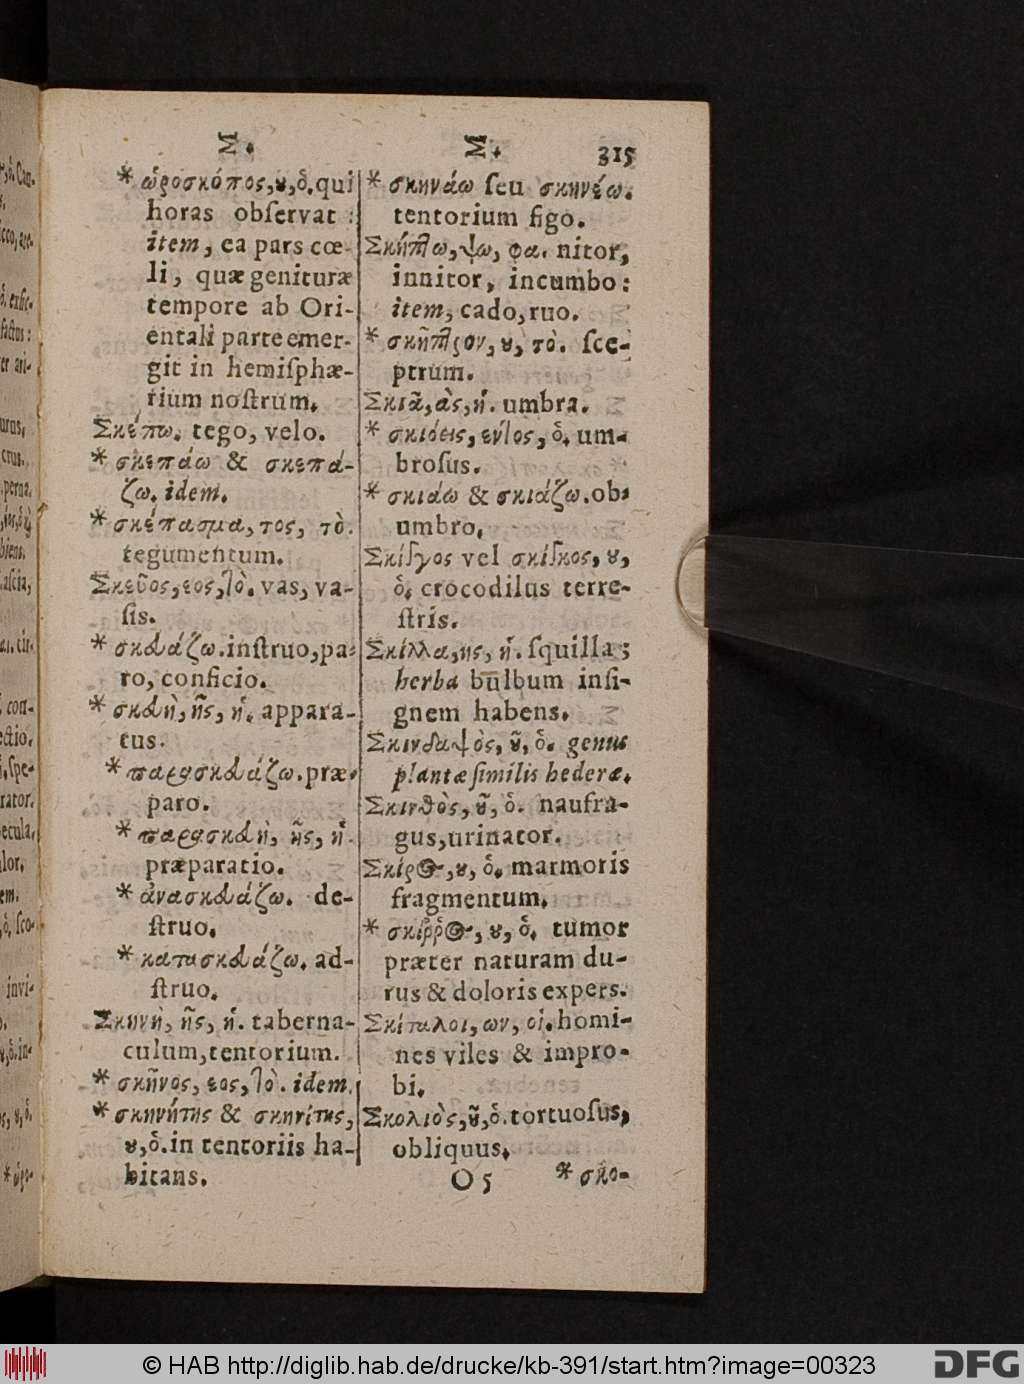 Σ. Σ. 315
* ὡροσκόπος, ου, ὁ. qui
horas obſervat :
item, ea pars cœ-
li, quæ genituræ
tempore ab Ori-
entali parte emer-
git in hemiſphæ-
rium noſtrum.
Σκέπω. tego, velo.
* σκεπάω & σκεπά-
ζω. idem.
* σκέπασμα, τος, τὸ.
tegumentum.
Σκεῦος, εος, τὸ. vas, va-
ſis.
* σκευάζω. inſtruo, pa-
ro, conficio.
* σκευὴ, ῆς, ἡ. appara-
tus.
* παρασκευάζω. præ-
paro.
* παρασκευὴ, ῆς, ἡ.
præparatio.
* ἀνασκευάζω. de-
ſtruo.
* κατασκευάζω. ad-
ſtruo.
Σκηνὴ, ῆς, ἡ. taberna-
culum, tentorium.
* σκῆνος, εος, τὸ. idem.
* σκηνήτης & σκηνίτης,
ου, ὁ. in tentoriis ha-
bitans.
* σκηνάω ſeu σκηνέω.
tentorium figo.
Σκήπτω, ψω, φα. nitor,
innitor, incumbo:
item, cado, ruo.
* σκῆπτρον, ου, τὸ. ſce-
ptrum.
Σκιὰ, ᾶς, ἡ. umbra.
* σκιόεις, εντος, ὁ. um-
broſus.
* σκιάω & σκιάζω. ob-
umbro.
Σκίγγος vel σκίγκος, ου,
ὁ. crocodilus terre-
ſtris.
Σκίλλα, ης, ἡ. ſquilla;
herba bulbum inſi-
gnem habens.
Σκινδαψὸς, οῦ, ὁ. genus
plantæ ſimilis hederæ.
Σκινθὸς, οῦ, ὁ. naufra-
gus, urinator.
Σκίρος, ου, ὁ. marmoris
fragmentum.
* σκίῤῥος, ου, ὁ. tumor
præter naturam du-
rus & doloris expers.
Σκίταλοι, ων, οἱ. homi-
nes viles & impro-
bi.
Σκολιὸς, οῦ, ὁ. tortuoſus,
obliquus.
O 5 * σκο-
© HAB http://diglib.hab.de/drucke/kb-391/start.htm?image=00323
DFG